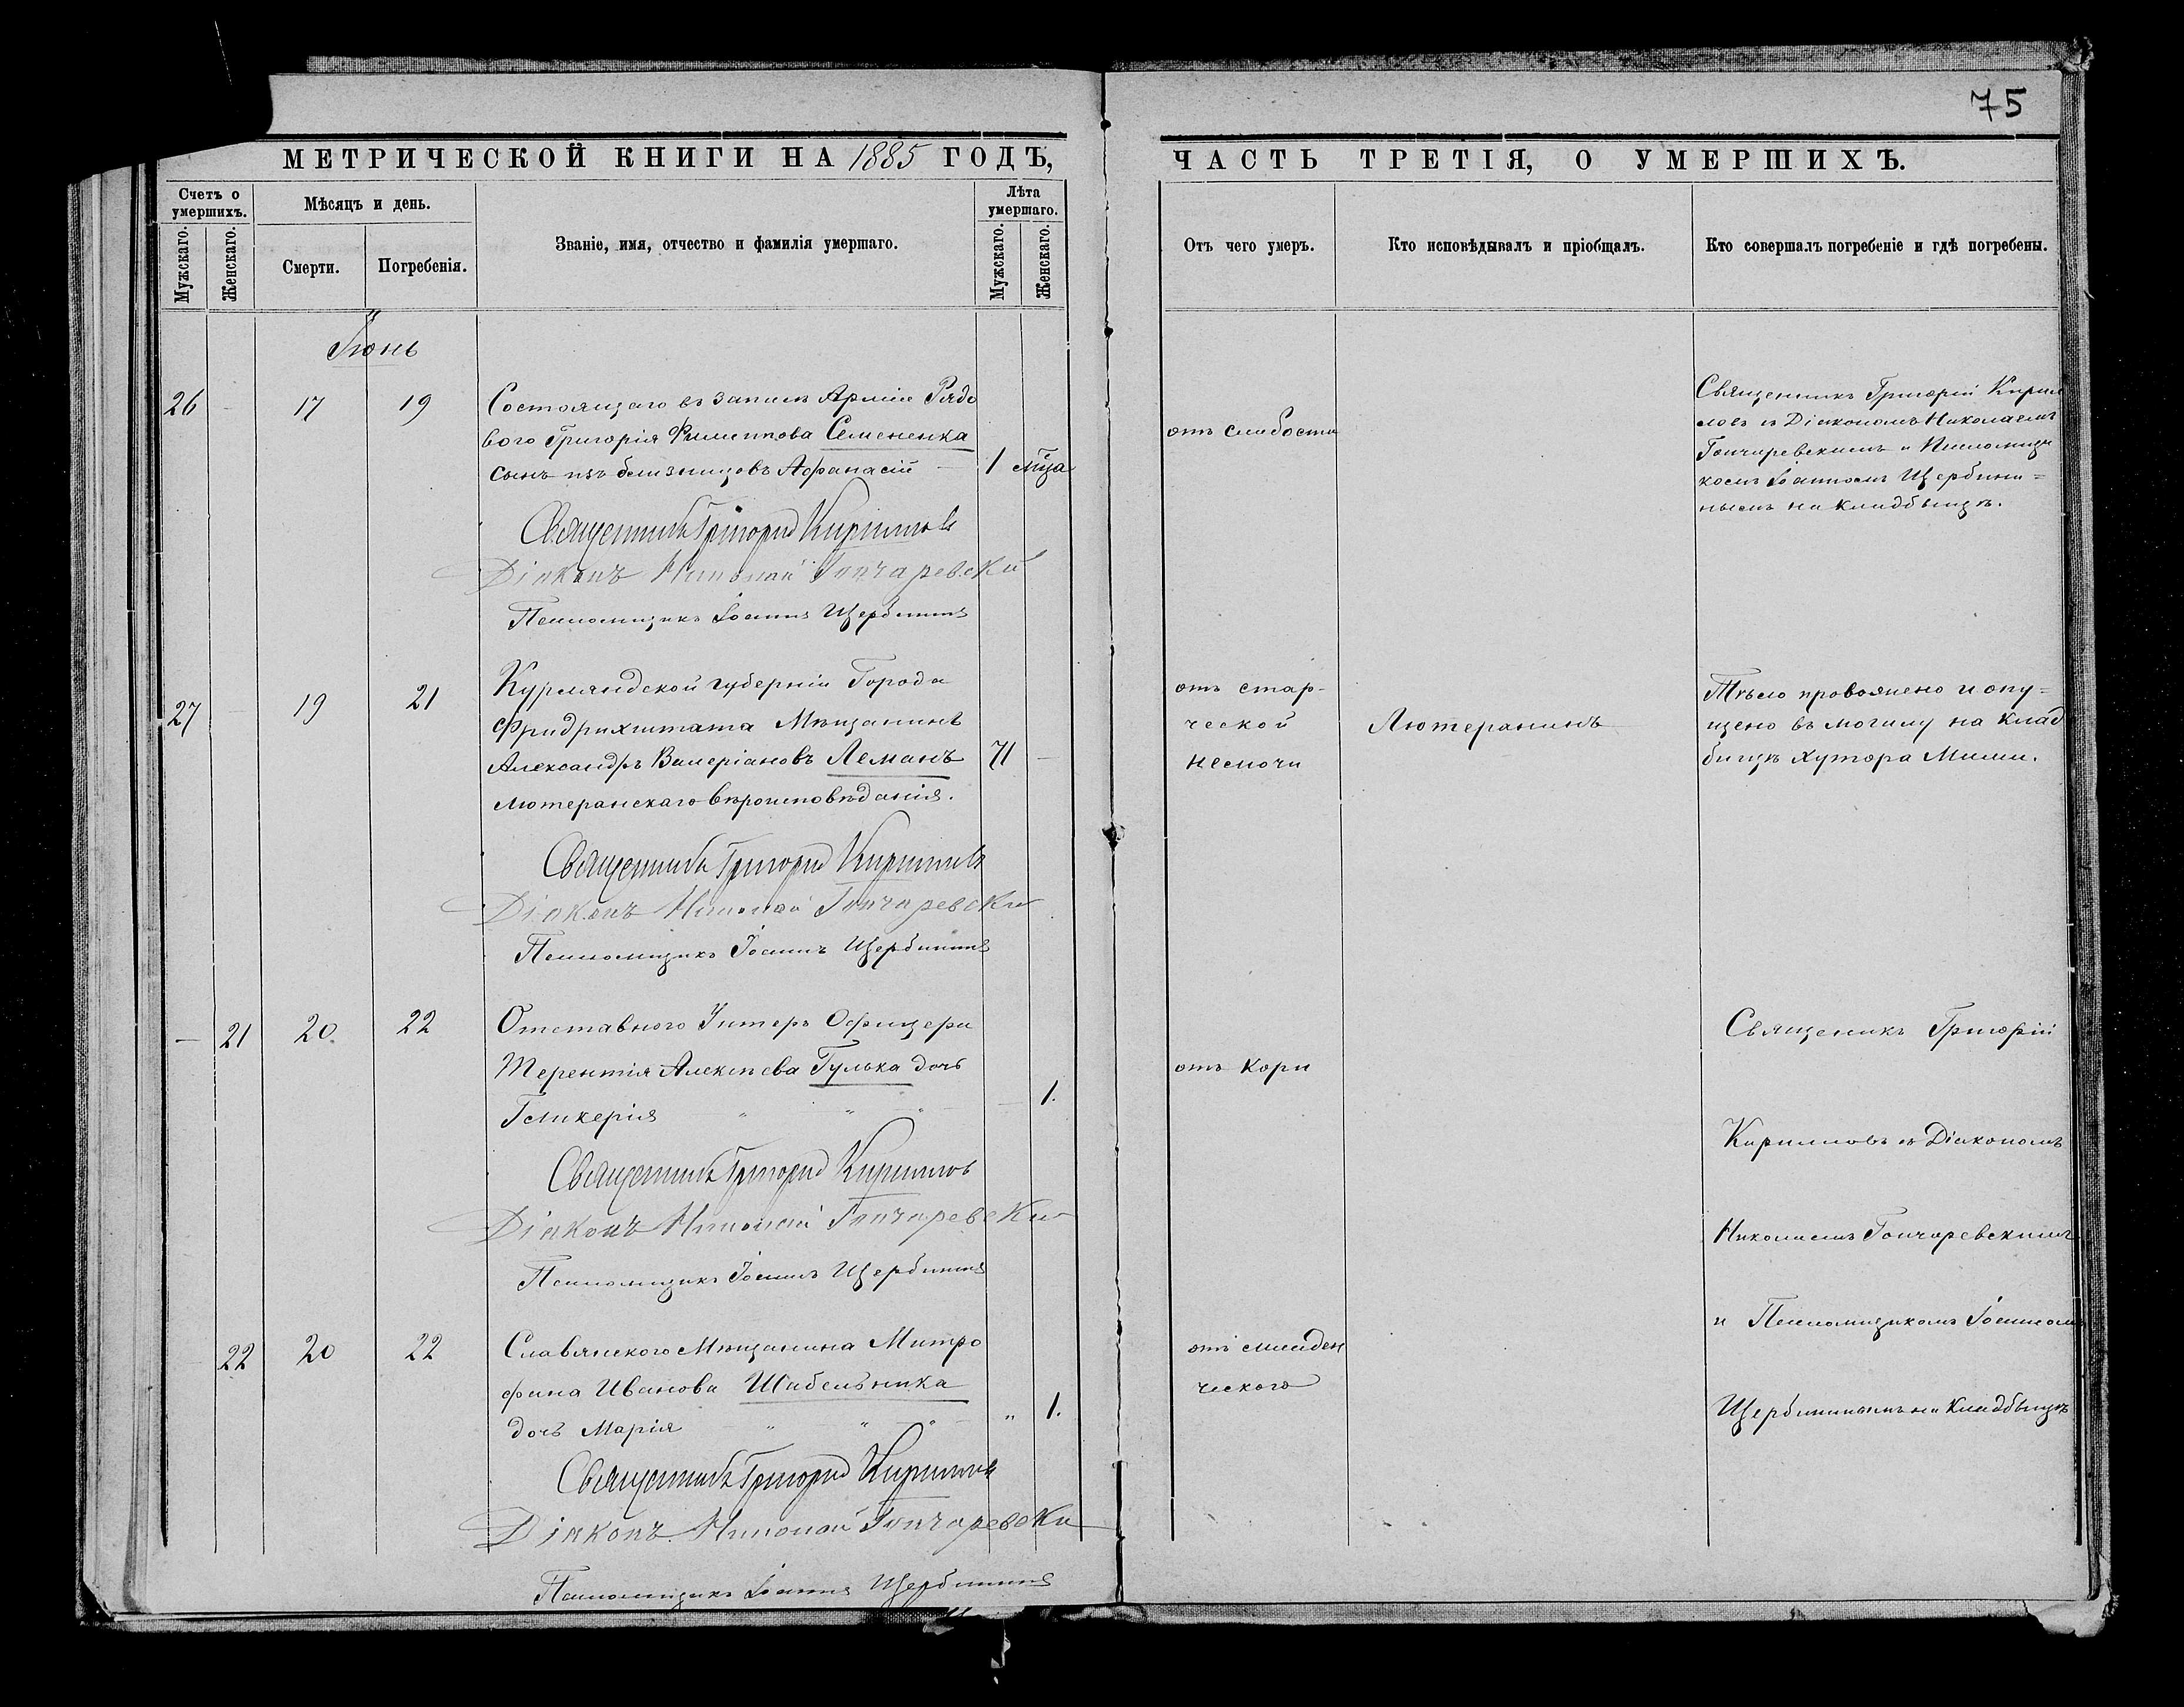 75
МЕТРИЧЕСКОЙ КНИГИ НА 1885 ГОДЪ,
ЧАСТЬ ТРЕТІЯ, О УМЕРШИХЪ.
Счетъ о умершихъ.
Мужскаго.
Женскаго.
Мѣсяцъ и день.
Смерти.
Погребенія.
Званіе, имя, отчество и фамилія умершаго.
Лѣта умершаго.
Мужскаго.
Женскаго.
Отъ чего умеръ.
Кто исповѣдывалъ и пріобщалъ.
Кто совершалъ погребеніе и гдѣ погребены.
Іюнь
26 17 19 Состоящаго въ запасѣ Арміи Рядо
вого Григорія Филиппова Семененка
сынъ изъ близнецовъ Афанасій 1 мца
отъ слабости
Священникъ Григорій Кирил
ловъ съ Діакономъ Николаемъ
Гончаревскимъ и Псаломщи
комъ Іоанномъ Щербини=
нымъ на кладбищѣ.
Священникъ Григорій Кирилловъ
Діаконъ Николай Гончаревскій
Псаломщикъ Іоаннъ Щербининъ
27 19 21 Курляндской губерніи Города
Фридрихштата Мѣщанинъ
Александръ Валеріановъ Леманъ 71
лютеранскаго вѣроисповѣданія.
отъ стар-
ческой
немочи
Лютеранинъ
Тѣло провожено и опу=
щено въ могилу на клад
бищѣ хутора Милли.
Священникъ Григорій Кирилловъ
Діаконъ Николай Гончаревскій
Псаломщикъ Іоаннъ Щербининъ
21 20 22 Отставного Унтеръ Офицера
Терентія Алексѣева Гулька дочь
Гликерія " " " 1.
отъ кори
Священикъ Григорій
Кирилловъ съ Діакономъ
Николаемъ Гончаревскимъ
и Псаломщикомъ Іоанномъ
Щербининымъ на кладбищѣ
Священникъ Григорій Кирилловъ
Діаконъ Николай Гончаревскій
Псаломщикъ Іоаннъ Щербининъ
22 20 22 Славянского Мѣщанина Митро
фана Иванова Шабельника
дочь Марія " " " " 1.
отъ младен
ческого
Священникъ Григорій Кирилловъ
Діаконъ Николай Гончаревскій
Псаломщикъ Іоаннъ Щербининъ